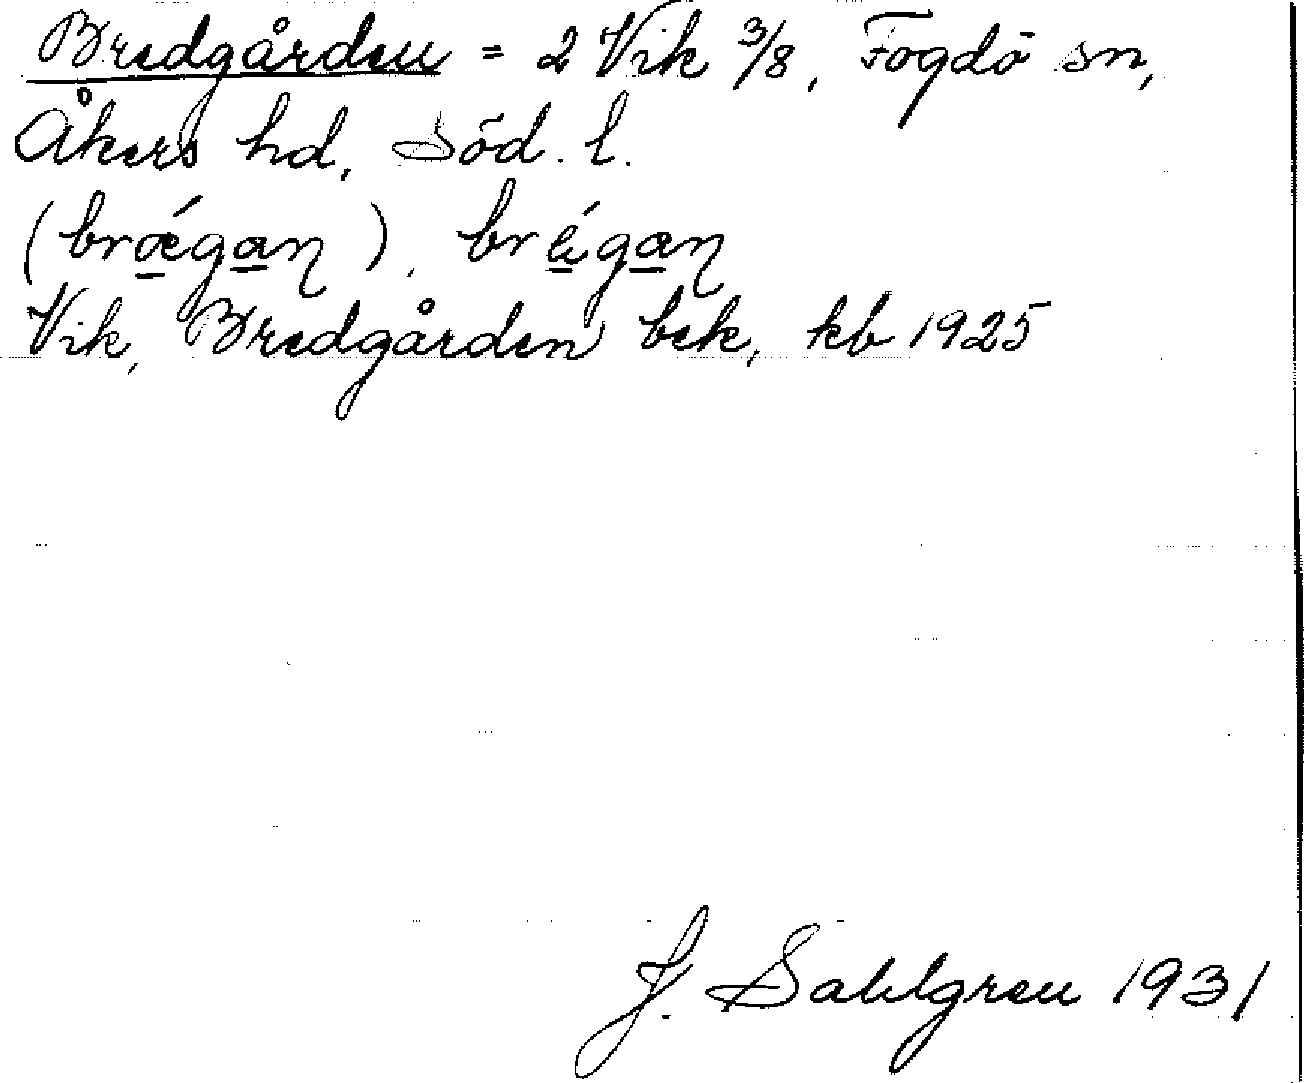 Bredgården = 2 Vik 3/8, Fogdö sn,
Åkers hd, Söd. l.
(brǽgaɳ), brégaɳ
Vik, Bredgården bek, kb 1925
J. Sahlgren 1931